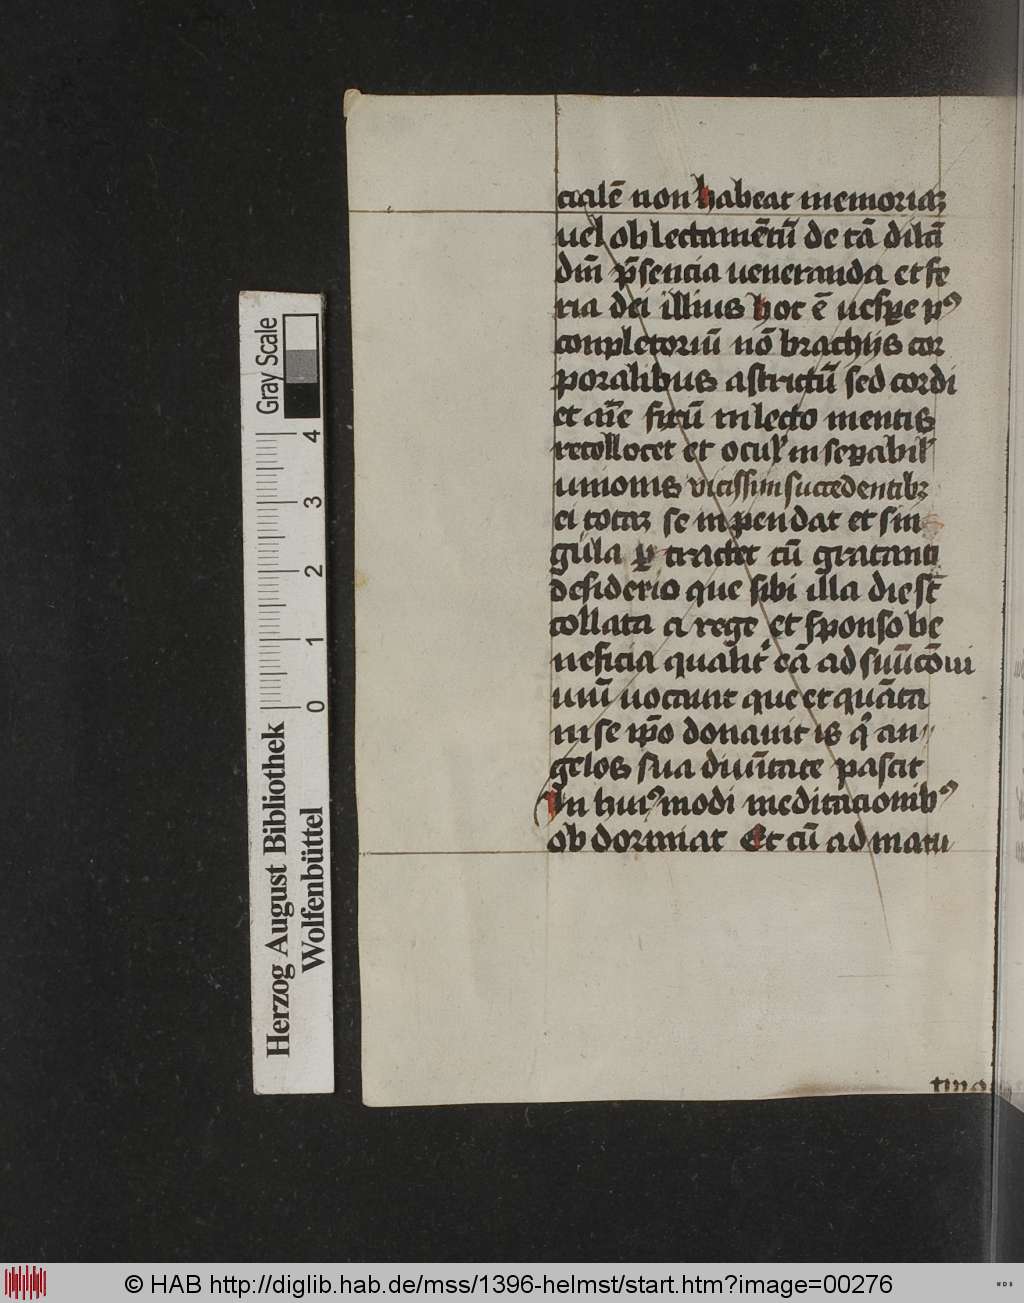 cialē non habeat memoriaꝫ
uel oblectamētū de tā dilcā
dm̄ p̄sencia ueneranda et fe
ria dei illius hoc ē uesꝑe pꝰ
conpletoriū nō brachijs cor
poralibus astrictū sed cordi
et aīe fixū in lecto mentis
recollocet et ocul'
unionis vicissim succedentibꝫ
ei totaꝫ se inpendat et sin
gula ꝑtractet cū gratanti
desiderio que sibi illa die st̄
collata a rege et sponso be
neficia qualit' eā ad suū cōui
uiū uocauit que et quāta
in se ip̄o donauit is qͥ an
gelos sua diuītate pascit
In huiꝰmodi meditacionibꝰ
obdormiat Et cū ad matu
tino
Herzog August Bibliothek
Wolfenbüttel
Gray Scale
0 1 2 3 4
© HAB http://diglib.hab.de/mss/1396-helmst/start.htm?image=00276